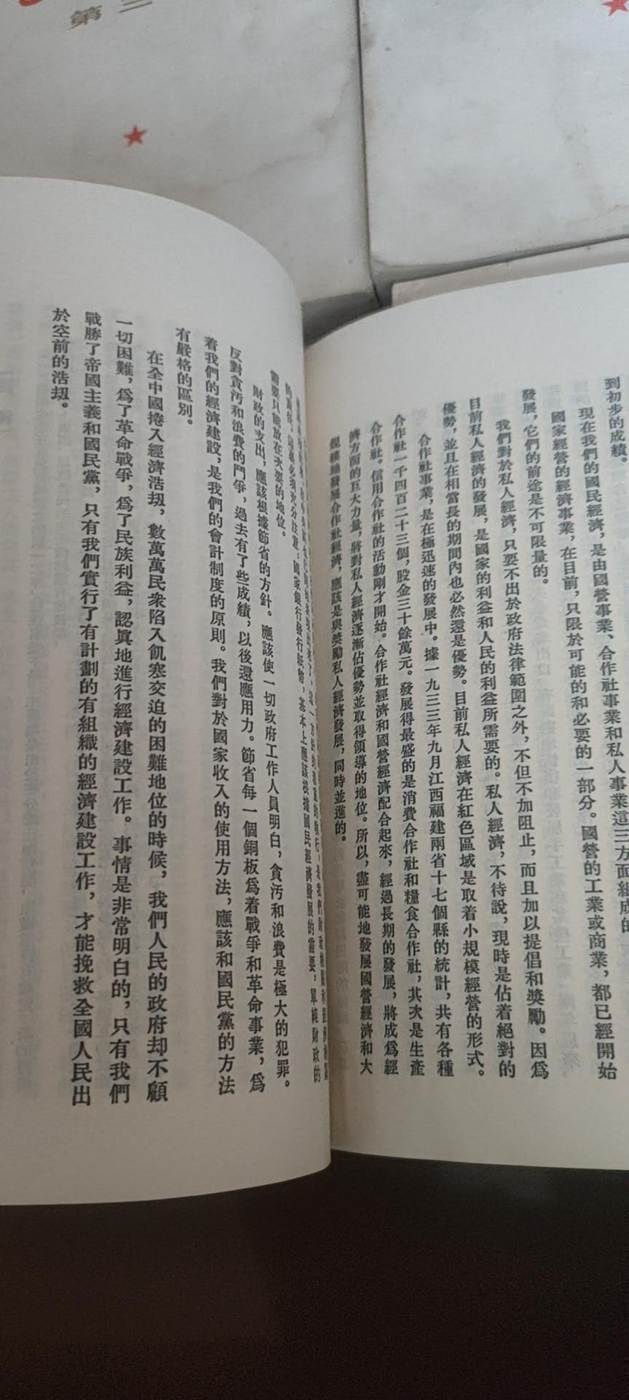 第三
到初步的成績。
現在我們的國民經濟，是由國營事業、合作社事業和私人事業這三方面組成的
國家經營的經濟事業，在目前，只限於可能的和必要的一部分。國營的工業或商業，都已經開始
發展，它們的前途是不可限量的。
我們對於私人經濟，只要不出於政府法律範圍之外，不但不加阻止，而且加以提倡和獎勵。因爲
目前私人經濟的發展，是國家的利益和人民的利益所需要的。私人經濟，不待說，現時是佔着絕對的
優勢，並且在相當長的期間內也必然還是優勢。目前私人經濟在紅色區域是取着小規模經營的形式。
合作社事業，是在極迅速的發展中。據一九三三年九月江西福建兩省十七個縣的統計，共有各種
合作社一千四百二十三個，股金三十餘萬元。發展得最盛的是消費合作社和糧食合作社，其次是生產
合作社。信用合作社的活動剛才開始。合作社經濟和國營經濟配合起來，經過長期的發展，將成爲經
濟方面的巨大力量，將對私人經濟逐漸佔優勢並取得領導的地位。所以，盡可能地發展國營經濟和大
規模地發展合作社經濟，應該是與獎勵私人經濟發展，同時並進的。
國家銀行發行紙幣，基本上應該根據國民經濟發展的需要，單純財政的
需要只能放在次要的地位。
財政的支出，應該根據節省的方針。應該使一切政府工作人員明白，貪污和浪費是極大的犯罪。
反對貪污和浪費的鬥爭，過去有了些成績，以後還應用力。節省每一個銅板爲着戰爭和革命事業，爲
着我們的經濟建設，是我們的會計制度的原則。我們對於國家收入的使用方法，應該和國民黨的方法
有嚴格的區別。
在全中國捲入經濟浩刼，數萬萬民衆陷入飢寒交迫的困難地位的時候，我們人民的政府却不顧
一切困難，爲了革命戰爭，爲了民族利益，認眞地進行經濟建設工作。事情是非常明白的，只有我們
戰勝了帝國主義和國民黨，只有我們實行了有計劃的有組織的經濟建設工作，才能挽救全國人民出
於空前的浩刼。